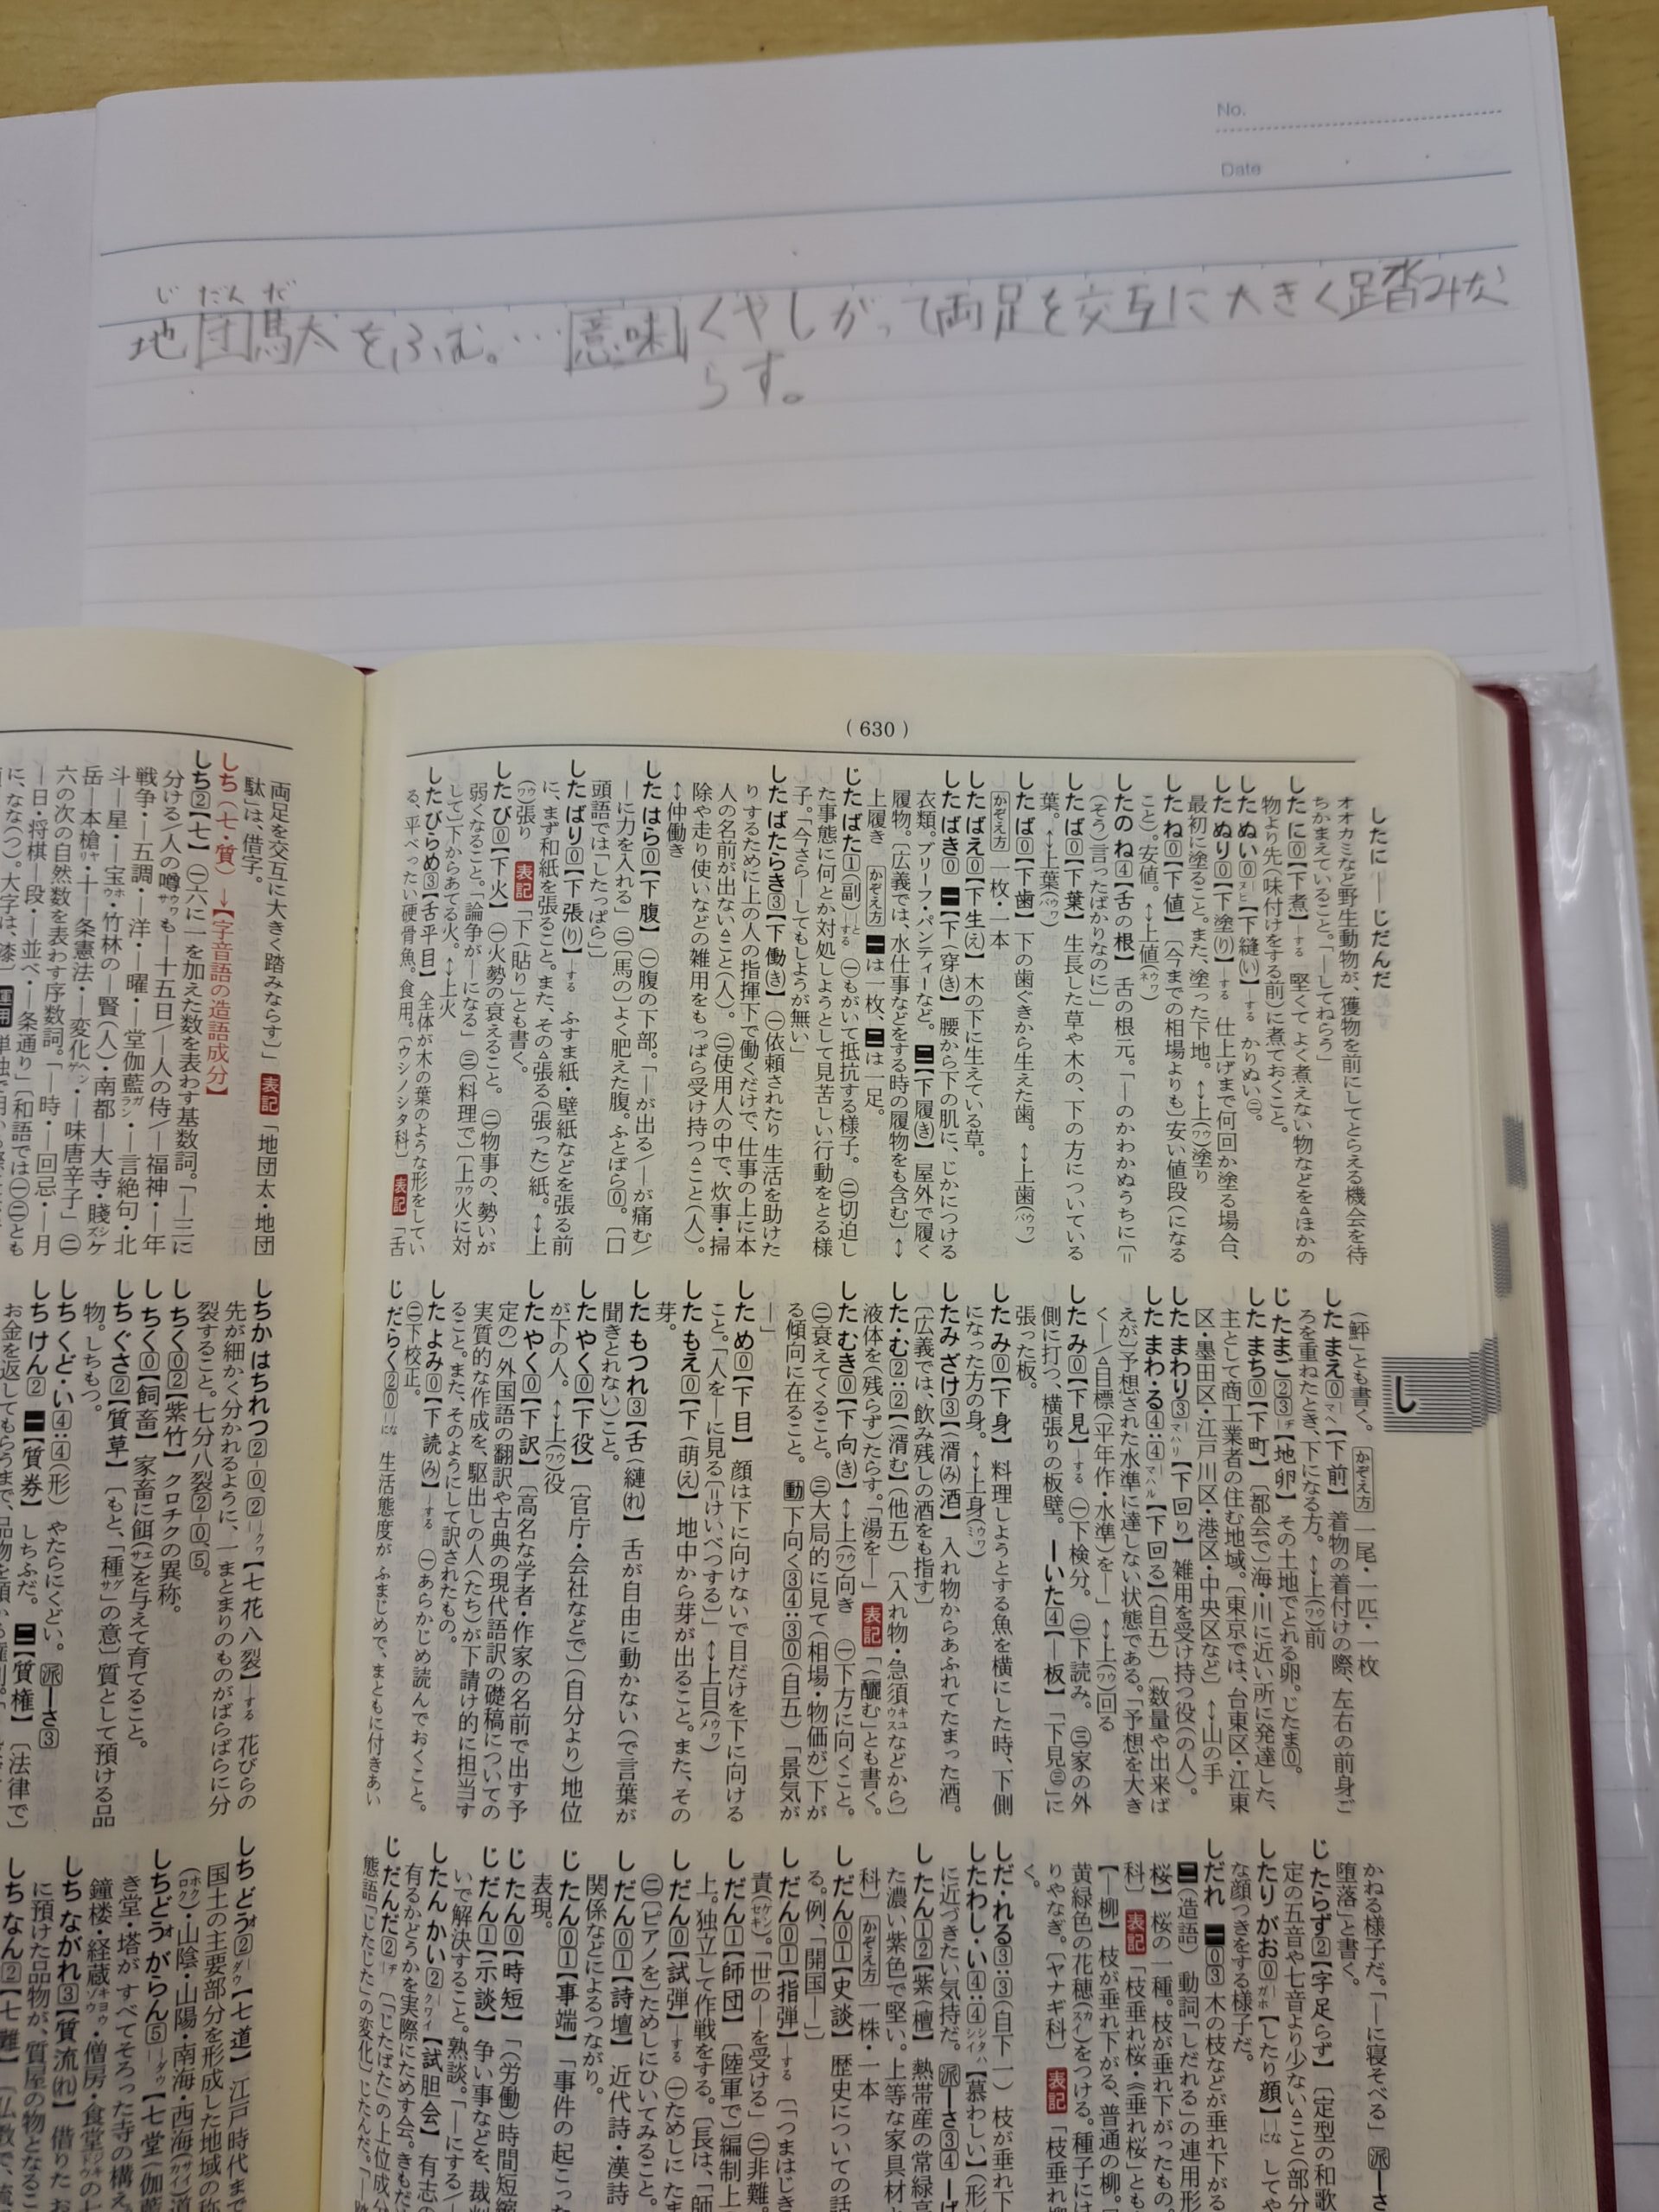 No.
Date
じ だん だ
地団馬太をふむ。…意味 くやしがって両足を交互に大きく踏みな
らす。
( 630 )
したに ── じだんだ
オオカミなど野生動物が、獲物を前にしてとらえる機会を待
ちかまえていること。「―してねらう」
したに⓪【下煮】―する 堅くてよく煮えない物などを△ほかの
物より先(味付けをする前)に煮ておくこと。
したぬい⓪【下縫(い)】―する かりぬい㊀。
したぬり⓪【下塗(り)】―する 仕上げまで何回か塗る場合、
最初に塗ること。また、塗った下地。↔上塗り
したね⓪【下値】〔今までの相場よりも〕安い値段(になる
こと)。安値。↔上値
したのね④【舌の根】 舌の根元。「―のかわかぬうちに〔=
(そう)言ったばかりなのに〕」
したば⓪【下葉】 生長した草や木の、下の方についている
葉。↔上葉
したば⓪【下歯】 下の歯ぐきから生えた歯。↔上歯
かぞえ方 一枚・一本
したばえ⓪【下生(え)】 木の下に生えている草。
したばき⓪ ■一【下(穿き)】 腰から下の肌に、じかにつける
衣類。ブリーフ・パンティーなど。■二【下履(き)】 屋外で履く
履物。〔広義では、水仕事などをする時の履物をも含む〕↔
上履き かぞえ方 ■一は一枚、■二は一足。
じたばた①(副)―と―する ㊀もがいて抵抗する様子。㊁切迫し
た事態に何とか対処しようとして見苦しい行動をとる様
子。「今さら―してもしようが無い」
したばたらき③【下働(き)】 ㊀依頼されたり生活を助けた
りするために上の人の指揮下で働くだけで、仕事の上に本
人の名前が出ない△こと(人)。㊁使用人の中で、炊事・掃
除や走り使いなどの雑用をもっぱら受け持つ△こと(人)。
↔仲働き
したはら⓪【下腹】 ㊀腹の下部。「―が出る/―が痛む/
―に力を入れる」㊁〔馬の〕よく肥えた腹。ふとばら⓪。〔口
頭語では「したっぱら」〕
したばり⓪【下張(り)】―する ふすま紙・壁紙などを張る前
に、まず和紙を張ること。また、その△張る(張った)紙。↔上
張り 表記「下(貼り)」とも書く。
したび⓪【下火】 ㊀火勢の衰えること。㊁物事の、勢いが
弱くなること。「論争が―になる」㊂〔料理で〕〔上火に対
して〕下からあてる火。↔上火
したびらめ③【舌平目】 全体が木の葉のような形をしてい
る、平べったい硬骨魚。食用。〔ウシノシタ科〕 表記「舌
(鮃)」とも書く。 かぞえ方 一尾・一匹・一枚
したまえ⓪【下前】 着物の着付けの際、左右の前身ご
ろを重ねたとき、下になる方。↔上前
じたまご②③【地卵】 その土地でとれる卵。じたま⓪。
したまち⓪【下町】〔都会で〕海・川に近い所に発達した、
主として商工業者の住む地域。〔東京では、台東区・江東
区・墨田区・江戸川区・港区・中央区など〕↔山の手
したまわり③【下回り】 雑用を受け持つ役(の人)。
したまわ・る④:④【下回る】(自五)〔数量や出来ば
えが〕予想された水準に達しない状態である。「予想を大き
く―/△目標(平年作・水準)を―」↔上回る
したみ⓪【下見】―する ㊀下検分。㊁下読み。㊂家の外
側に打つ、横張りの板壁。―いた④【―板】「下見㊂」に
張った板。
したみ⓪【下身】 料理しようとする魚を横にした時、下側
になった方の身。↔上身
したみざけ③【湑(み)酒】 入れ物からあふれてたまった酒。
〔広義では、飲み残しの酒をも指す〕
した・む②:②【湑む】(他五)〔入れ物・急須などから〕
液体を(残らず)たらす。「湯を―」 表記「(釃む」とも書く。
したむき⓪【下向(き)】↔上向き ㊀下方に向くこと。
㊁衰えてくること。㊂大局的に見て(相場・物価が)下が
る傾向に在ること。 動下向く③④:③⓪(自五)「景気が
―」
ため⓪【下目】 顔は下に向けないで目だけを下に向ける
こと。「人を―に見る〔=けいべつする〕」↔上目
したもえ⓪【下(萌(え)】 地中から芽が出ること。また、その
芽。
したもつれ③【舌(縺(れ)】 舌が自由に動かない(で言葉が
聞きとれない)こと。
したやく⓪【下役】〔官庁・会社などで〕(自分より)地位
が下の人。↔上役
したやく⓪【下訳】〔高名な学者・作家の名前で出す予
定の〕外国語の翻訳や古典の現代語訳の礎稿についての
実質的な作成を、駆出しの人(たち)が下請け的に担当す
ること。また、そのようにして訳されたもの。
したよみ⓪【下読(み)】―する ㊀あらかじめ読んでおくこと。
㊁下校正。
じだらく②⓪―な―に 生活態度がふまじめで、まともに付きあい
かねる様子だ。「―に寝そべる」 派―さ
堕落」と書く。
じたらず②【字足らず】〔定型の和歌
定の五音や七音より少ない△こと(部分
したりがお⓪【したり顔】―な―に してや
な顔つきをする様子だ。
しだれ ■一⓪③ 木の枝などが垂れ下がる
■二(造語) 動詞「しだれる」の連用形
桜】 桜の一種。枝が垂れ下がったもの。
科〕 表記「枝垂れ桜・《垂れ桜」とも
【―柳】 枝が垂れ下がる、普通の柳。
黄緑色の花穂をつける。種子には
りやなぎ。〔ヤナギ科〕 表記「枝垂れ柳
く。
しだ・れる③:③(自下一) 枝が垂れ下
したわし・い④:④【慕わしい】(形
に近づきたい気持だ。 派―さ③④―げ
したん①②【紫(檀】 熱帯産の常緑高
た濃い紫色で堅い。上等な家具材と
科〕 かぞえ方 一株・一本
しだん⓪①【史談】 歴史についての話
る。例、「開国―」
しだん⓪①【指弾】―する〔つまはじき
責。「世の―を受ける」㊁非難。
しだん①【師団】〔陸軍で〕編制上
上。独立して作戦をする。〔長は、「師
しだん⓪【試弾】―する ㊀ためしにたま
㊁〔ピアノを〕ためしにひいてみること。
しだん⓪①【詩壇】 近代詩・漢詩
関係などによるつながり。
じたん⓪①【事端】「事件の起こった
表現。
じたん⓪【時短】「(労働)時間短縮
じだん①【示談】 争い事などを、裁判
いで解決すること。熟談。「―にする/―
したんかい②【試胆会】 有志の
有るかどうかを実際にためす会。きもだめ
じだんだ②〔「じたばた」の上位成分
態語「じただじた」の変化〕じたんだ。「―
両足を交互に大きく踏みならす〕」 表記「地団太・地団
駄」は、借字。
しち(七・質)→【字音語の造語成分】
しち②【七】 ㊀六に一を加えた数を表わす基数詞。「―三に
分ける/人の噂も―十五日/―人の侍/―福神・―年
戦争・―五調・―洋・―曜・―堂伽藍・―言絶句・北
斗―星・―宝・竹林の―賢(人)・南都―大寺・賤ケ
岳―本槍・十―条憲法・―変化・―味唐辛子」㊁
六の次の自然数を表わす序数詞。「―時・―回忌・―月
―日・将棋―段・―並べ・―条通り」〔和語では㊀㊁とも
に、なな(つ)。大字は、漆〕
しちかはちれつ②-⓪、②-⓪【七花八裂】―する 花びらの
先が細かく分かれるように、一まとまりのものがばらばらに分
裂すること。七分八裂②-⓪、⑤。
しちく⓪②【紫竹】 クロチクの異称。
しちく⓪【飼畜】 家畜に餌(エ)を与えて育てること。
しちぐさ②【質草】〔もと、「種」の意〕質として預ける品
物。しちもつ。
しちくど・い④:④(形) やたらにくどい。 派―さ③
しちけん② ■一【質券】 しちふだ。■二【質権】〔法律で〕
お金を返してもらうまで、品物を預かる権利。
しちどう②【七道】 江戸時代まで
国土の主要部分を形成した地域の称
・山陰・山陽・南海・西海道
しちどうがらん⑤【七堂(伽藍
き堂・塔がすべてそろった寺の構え
鐘楼・経蔵・僧房・食堂の七
しちながれ③【質流(れ)】 借りたお
に預けた品物が、質屋の物となるこ
しちなん②【七難】〔仏教で、
し